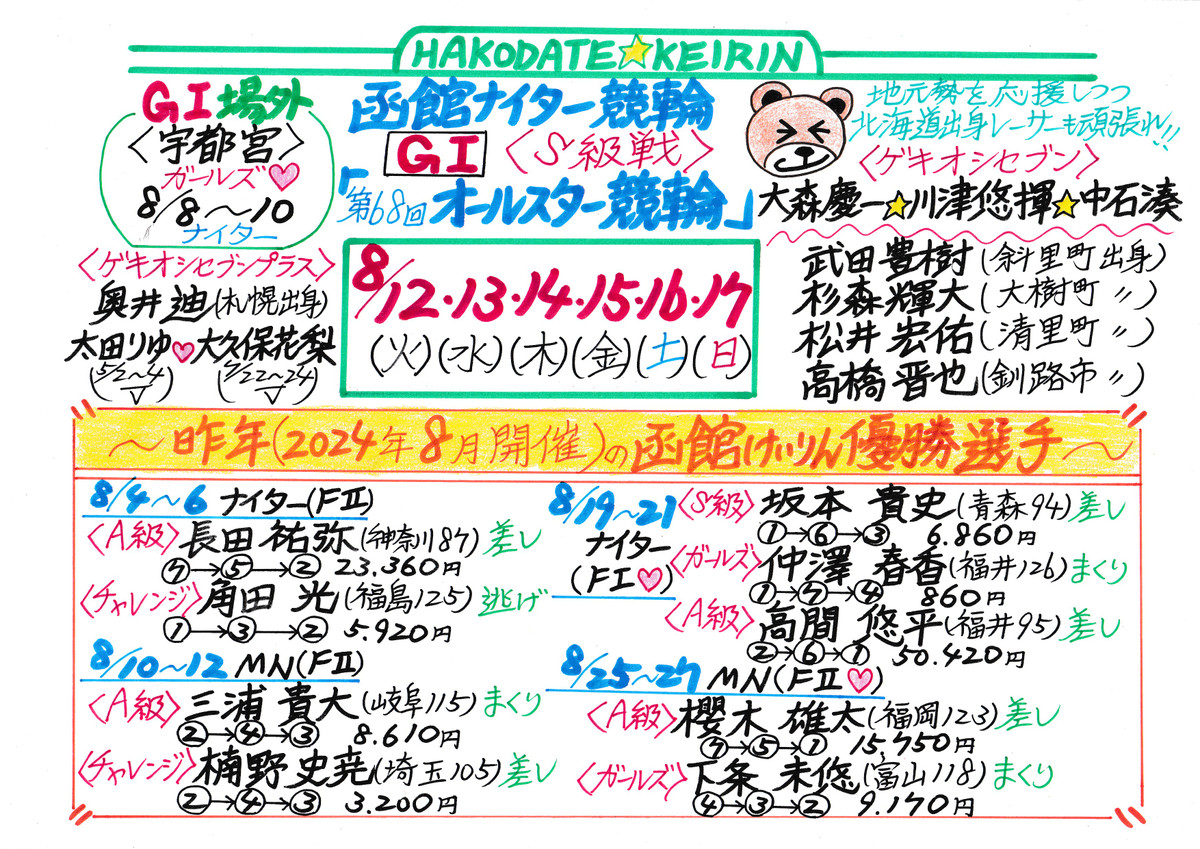 HAKODATE☆KEIRIN
GⅠ場外
〈宇都宮〉
ガールズ♡
8/8〜10
ナイター
〈ゲキオシセブンプラス〉
奥井迪(札幌出身)
太田りゆ♡大久保花梨
(5/2〜4) (7/22〜24)
函館ナイター競輪
GⅠ〈S級戦〉
「第68回オールスター競輪」
8/12・13・14・15・16・17
(火)(水)(木)(金)(土)(日)
地元勢を応援しつつ
北海道出身レーサーも頑張れ!!
〈ゲキオシセブン〉
大森慶一☆川津悠揮☆中石湊
武田豊樹(斜里町出身)
杉森輝大(大樹町〃)
松井宏佑(清里町〃)
高橋晋也(釧路市〃)
〜昨年(2024年8月開催)の函館けいりん優勝選手〜
8/4〜6 ナイター(FⅡ)
〈A級〉長田祐弥(神奈川87)差し
⑦→⑤→② 23.360円
〈チャレンジ〉角田光(福島125)逃げ
①→③→② 5.920円
8/10〜12 MN(FⅡ)
〈A級〉三浦貴大(岐阜115)まくり
②→④→③ 8.610円
〈チャレンジ〉楠野史尭(埼玉105)差し
②→④→③ 3.200円
8/19〜21
ナイター
(FⅠ♡)
〈S級〉坂本貴史(青森94)差し
①→⑥→③ 6.860円
〈ガールズ〉仲澤春香(福井126)まくり
①→⑦→④ 860円
〈A級〉高間悠平(福井95)差し
②→⑥→① 50.420円
8/25〜27 MN(FⅡ♡)
〈A級〉櫻木雄太(福岡123)差し
⑦→⑤→① 15.750円
〈ガールズ〉下条未悠(富山118)まくり
④→③→② 9.170円